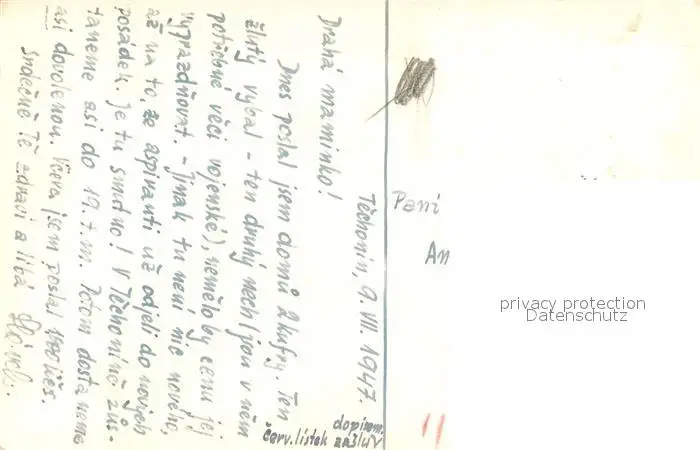 Těchonín, 9. VII. 1947.
Drahá maminko!
Dnes poslal jsem domů 2 kufry. Ten
žlutý vybal - ten druhý nech (jsou v něm
potřebné věci vojenské), nemělo by cenu jej
vyprazdňovat. - Jinak tu není nic nového,
až na to, že aspiranti už odjeli do nových
posádek. Je tu smutno! V Těchoníně zůs-
taneme asi do 19. t. m. Potom dostaneme
asi dovolenou. Včera jsem poslal 1500 Kčs.
Srdečně Tě zdraví a líbá
dopisem.
červ. lístek zašlu V
Paní
An
11
privacy protection
Datenschutz